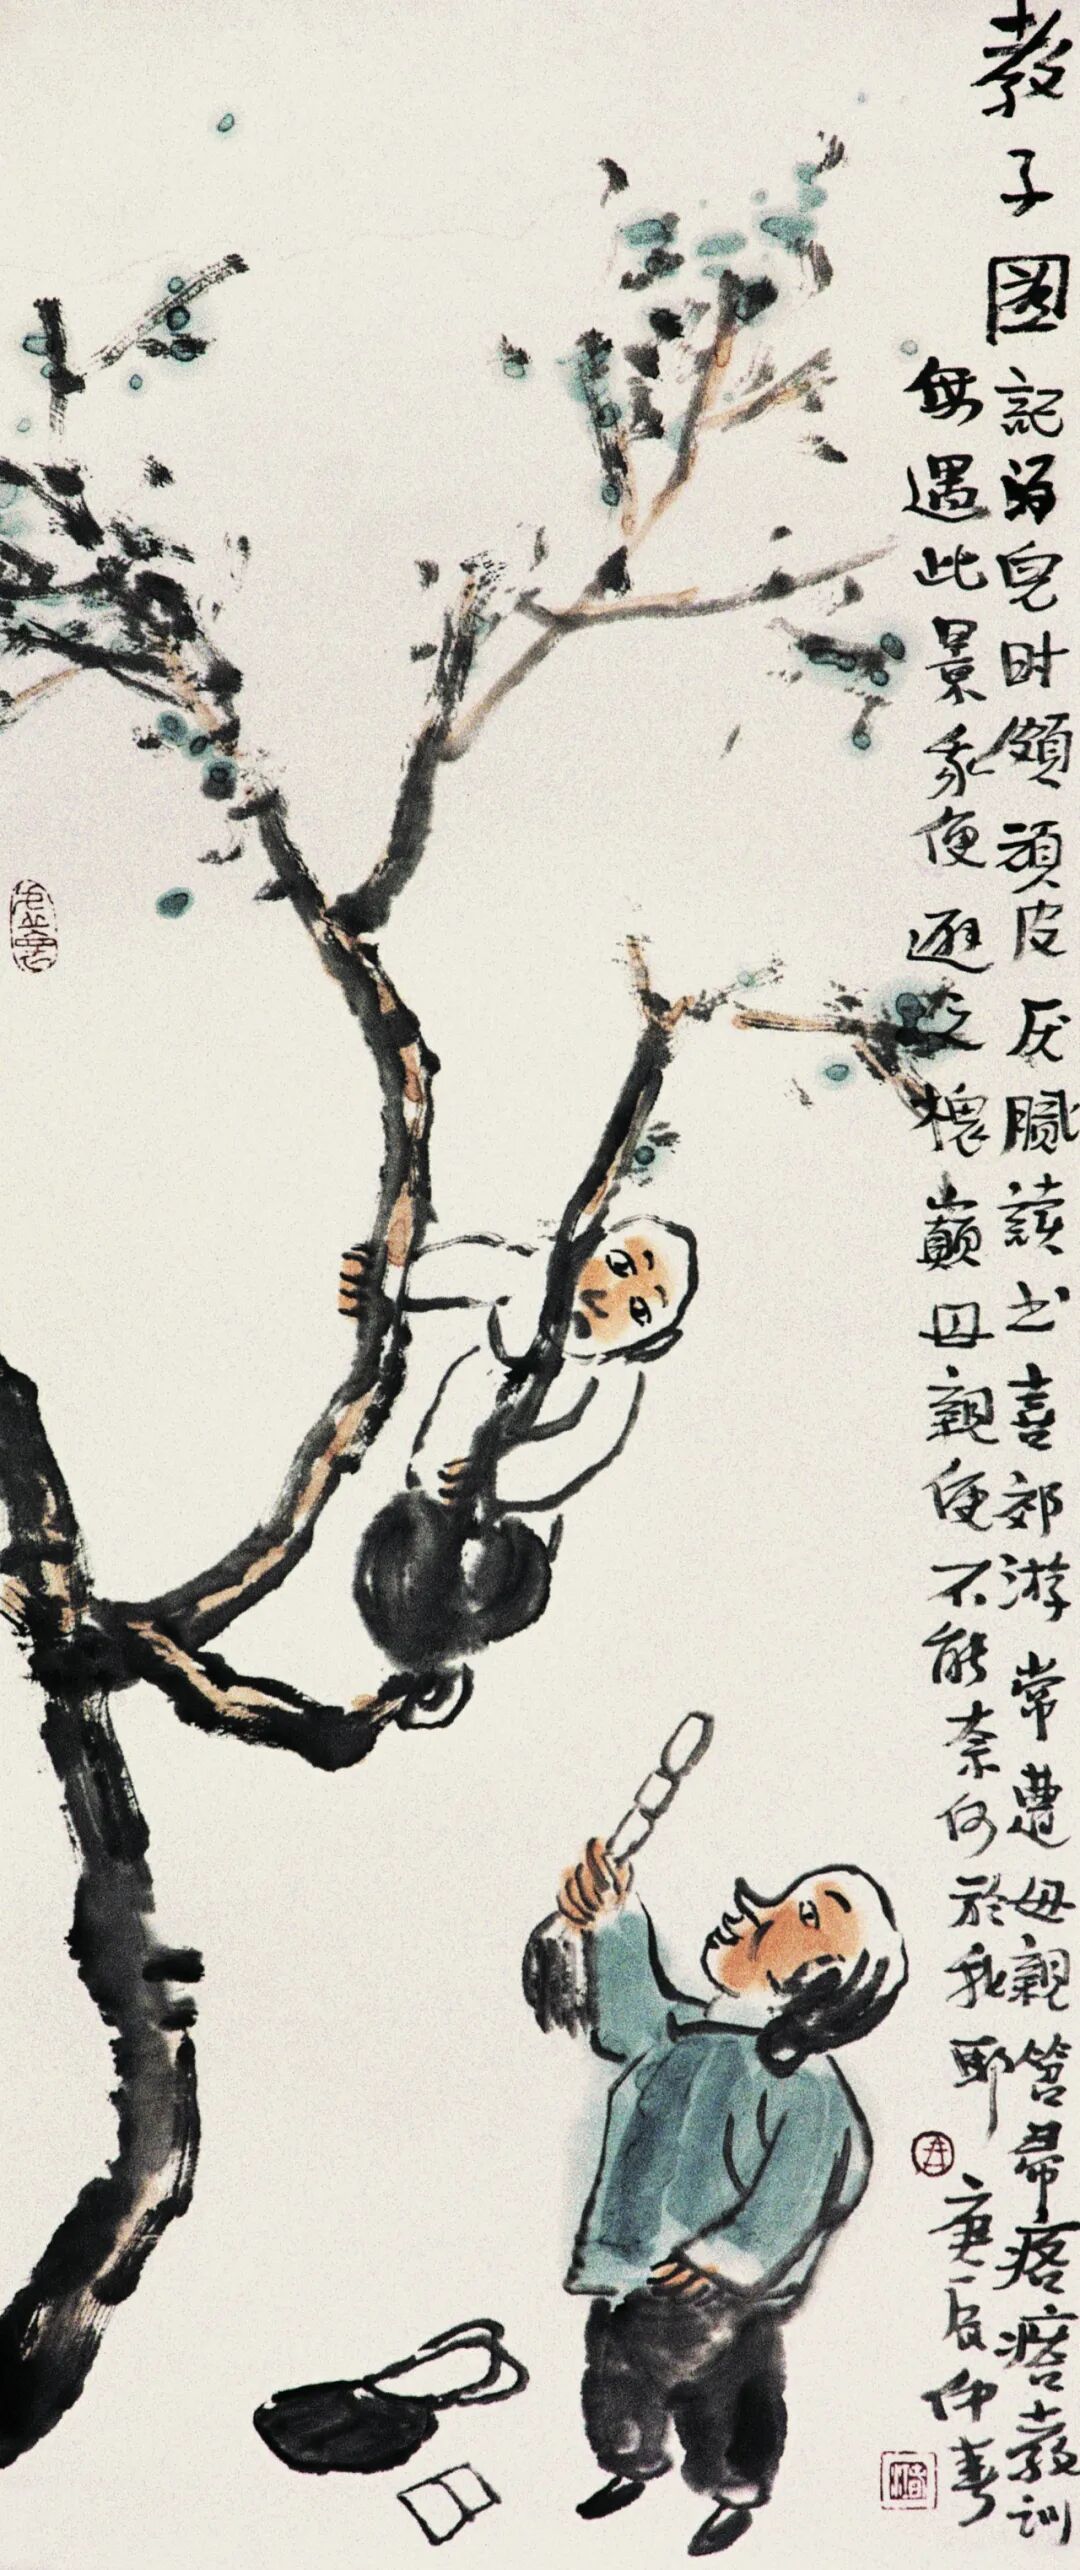 教子图
記得兒时頗頑皮厌膩讀书喜郊游常遭母親笤帚疙瘩教訓
每遇此景我便避槐巅母親便不能奈何於我耶
庚辰仲春